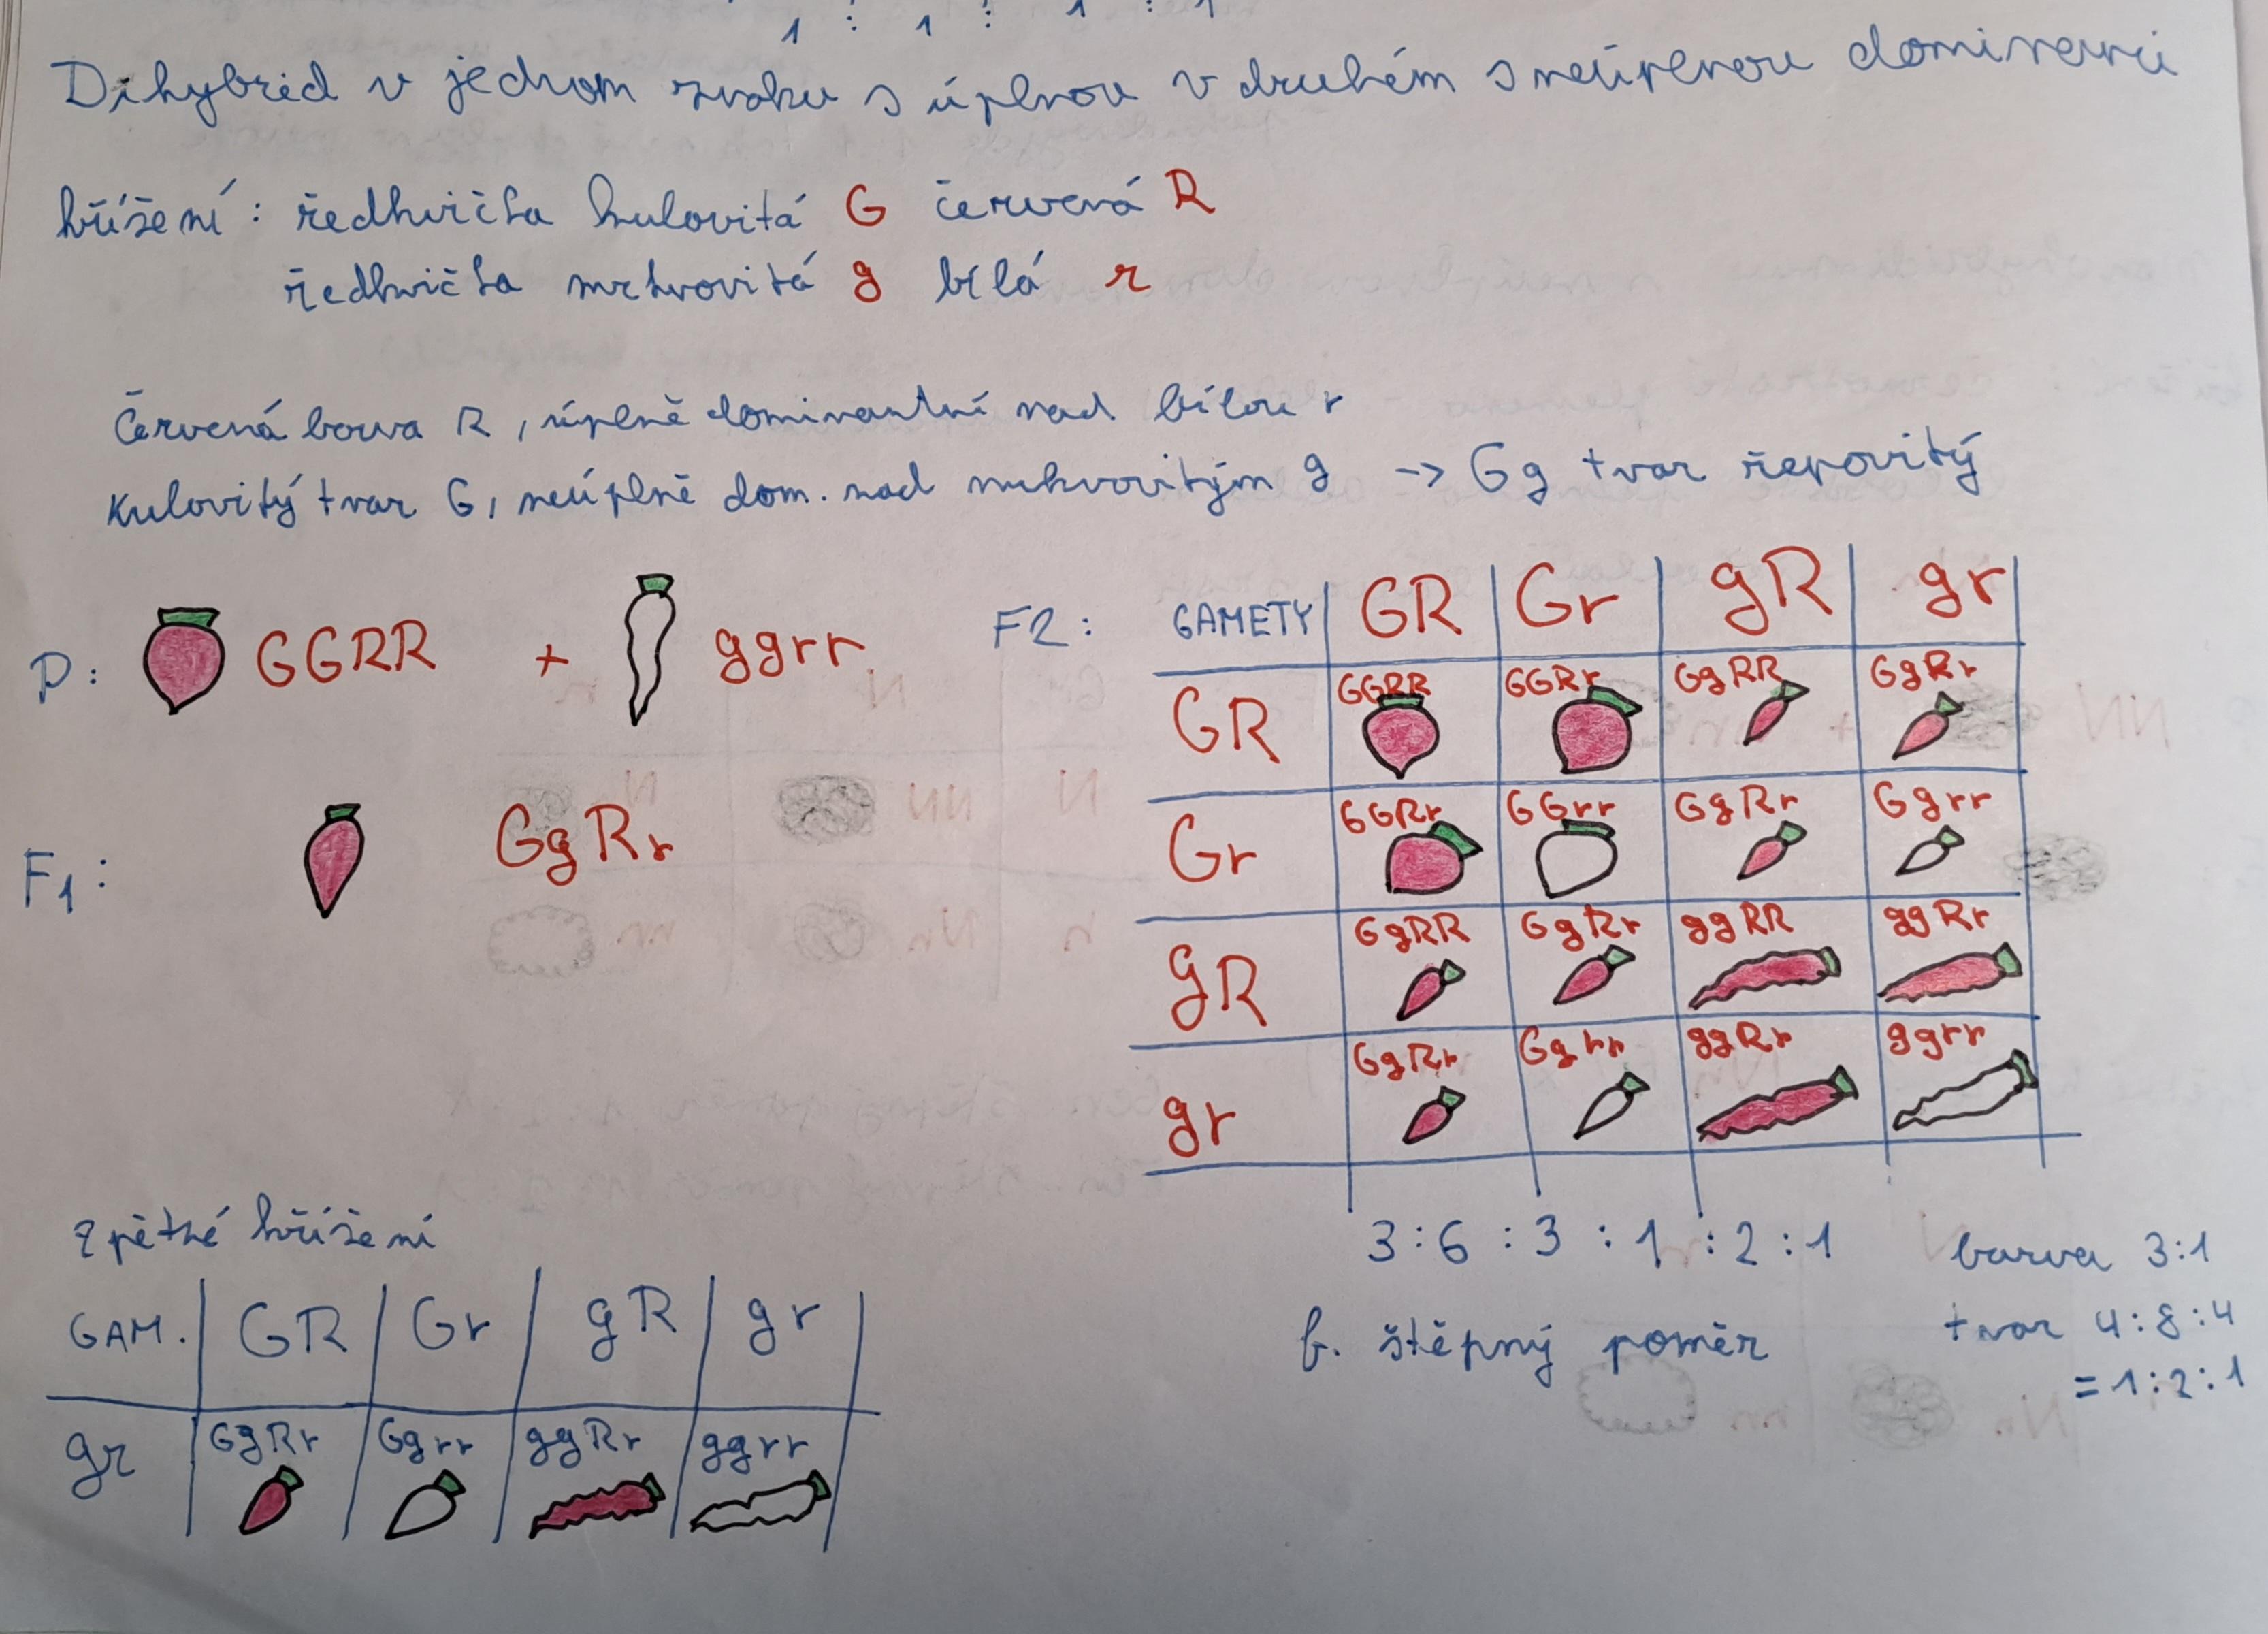 1 : 1 : 1 : 1
Dihybrid v jednom znaku s úplnou v druhém s neúplnou dominancí
křížení: ředkvička kulovitá G červená R
ředkvička mrkvovitá g bílá r
Červená barva R, úplně dominantní nad bílou r
Kulovitý tvar G, neúplně dom. nad mrkvovitým g -> Gg tvar řepovitý
P: GGRR + ggrr
F1: GgRr
F2: GAMETY GR Gr gR gr
GR GGRR GGRr GgRR GgRr
Gr GGRr GGrr GgRr Ggrr
gR GgRR GgRr ggRR ggRr
gr GgRr Ggrr ggRr ggrr
3:6:3:1:2:1
f. štěpný poměr
barva 3:1
tvar 4:8:4
=1:2:1
Zpětné křížení
GAM. GR Gr gR gr
gr GgRr Ggrr ggRr ggrr